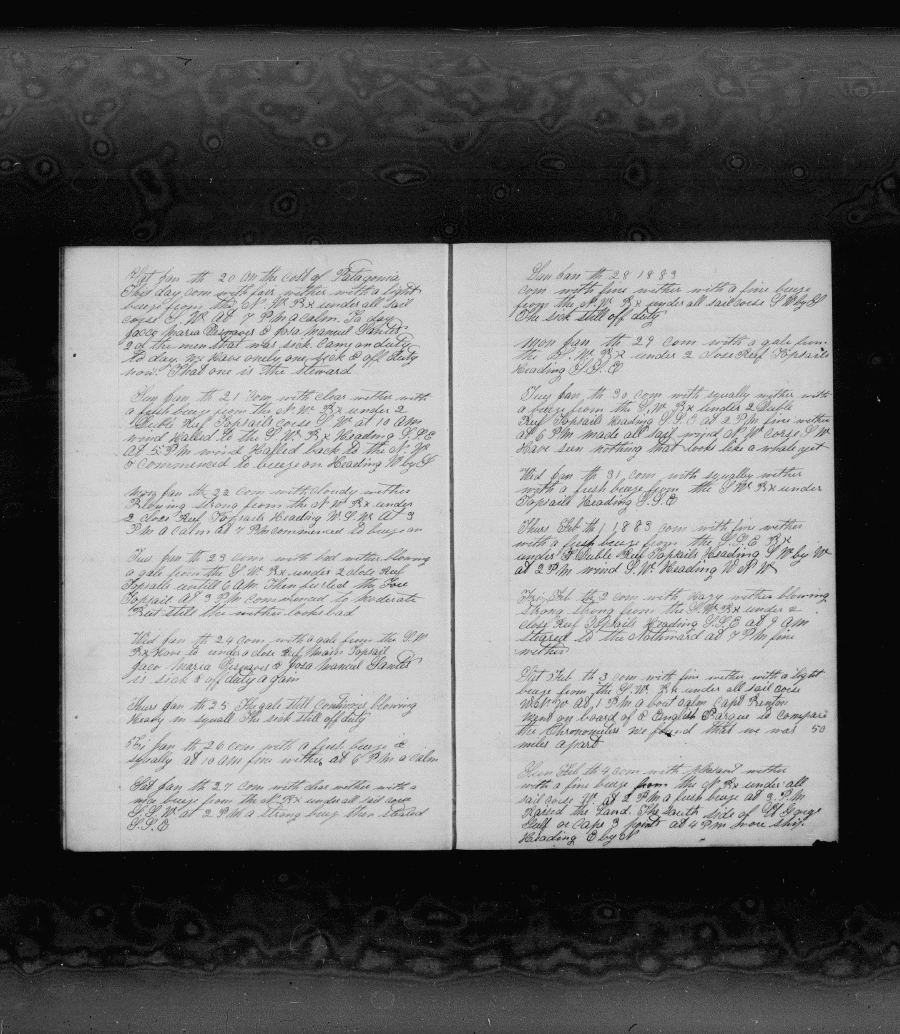 Sat Jan th 20 On the cost of Patagonia
This day com with fair wether with a light
breeze from the N W. Bx under all sail
corse S W. At 7 P M a calm. To day
Jacco Maria & Josa Manuel
2 of the men that was sick came on duty
to day. We have onely one sick & off duty
now. That one is the steward
Sun Jan th 21 Com with clear wether with
a fresh breeze from the N W. Bx under 2
Duble Reef Topsails corse S W. at 10 AM
wind halled to the S W. Bx Heading S. S. E
At 5 P M wind halled back to the N. W
& commenced to breeze on Heading W by S
Mon Jan th 22 com with cloudy wether
Blowing strong from the N W Bx under
2 close Reef Topsails Heading W S W. At 3
P M a calm at 7 P M commenced to breeze on
Tus Jan th 23 com with bad wether blowing
a gale from the S W Bx under 2 close Reef
Topsails untill 6 AM. Then furled the Fore
Topsail At 3 P M commenced to moderate
But still the wether looks bad
Wed Jan th 24 com with a gale from the S. W
Bx Hove to under a close Reef Main Topsail
Jaco Maria & Josa Manuel
is sick & off duty again
Thurs Jan th 25 The gale still Continues blowing
heavy in squall The sick still off duty
Fri Jan th 26 com with a fresh breeze &
squally at 10 AM fine wether at 6 P M a calm
Sat Jan th 27 Com with clear wether with a
breeze from the N. Bx under all sail corse
S. S. W at 2 P M a strong breeze then steared
S. S. E
Sun Jan th 28 1883
com with fine wether with a fine breeze
from the N. W. Bx under all sail corse S W by S
The sick still off duty
Mon Jan th 29 com with a gale from
the S. W. Bx under 2 close Reef Topsails
Heading S. S. E
Tus Jan th 30 com with squally wether with
a breeze from the S. W. Bx under 2 Duble
Reef Topsails Heading S. S. E at 2 P M fine wether
at 6 P M made all sail wind N W corse S W
Have seen nothing that looks like a whale yet
Wed Jan th 31 com with squalley wether
with a fresh breeze from the S W Bx under
Topsails Heading S. S. E
Thurs Feb th 1 1883 com with fine wether
with a fresh breeze from the S. S. E Bx
under 2 Duble Reef Topsails Heading S W by W
at 2 P M wind S. W. Heading W N W
Fri Feb th 2 com with hazy wether blowing
strong from the S. W Bx under 2
close Reef Topsails Heading S. S. E at 9 AM
steared to the Northward at 7 P M fine
wether
Sat Feb th 3 com with fine wether with a light
breeze from the S. W. Bx under all sail corse
W by W At 1 P M about calm Capt
went on board of a English Barque to compare
the Chronometers we found that we was 50
miles apart
Sun Feb th 4 com with pleasant wether
with a fine breeze from the N Bx under all
sail corse W. at 2 P M a fresh breeze at 3 P M
Raised the Land. The South side of St George
Gulf or Cape 3 Points at 4 P M wore ship
Heading E by N